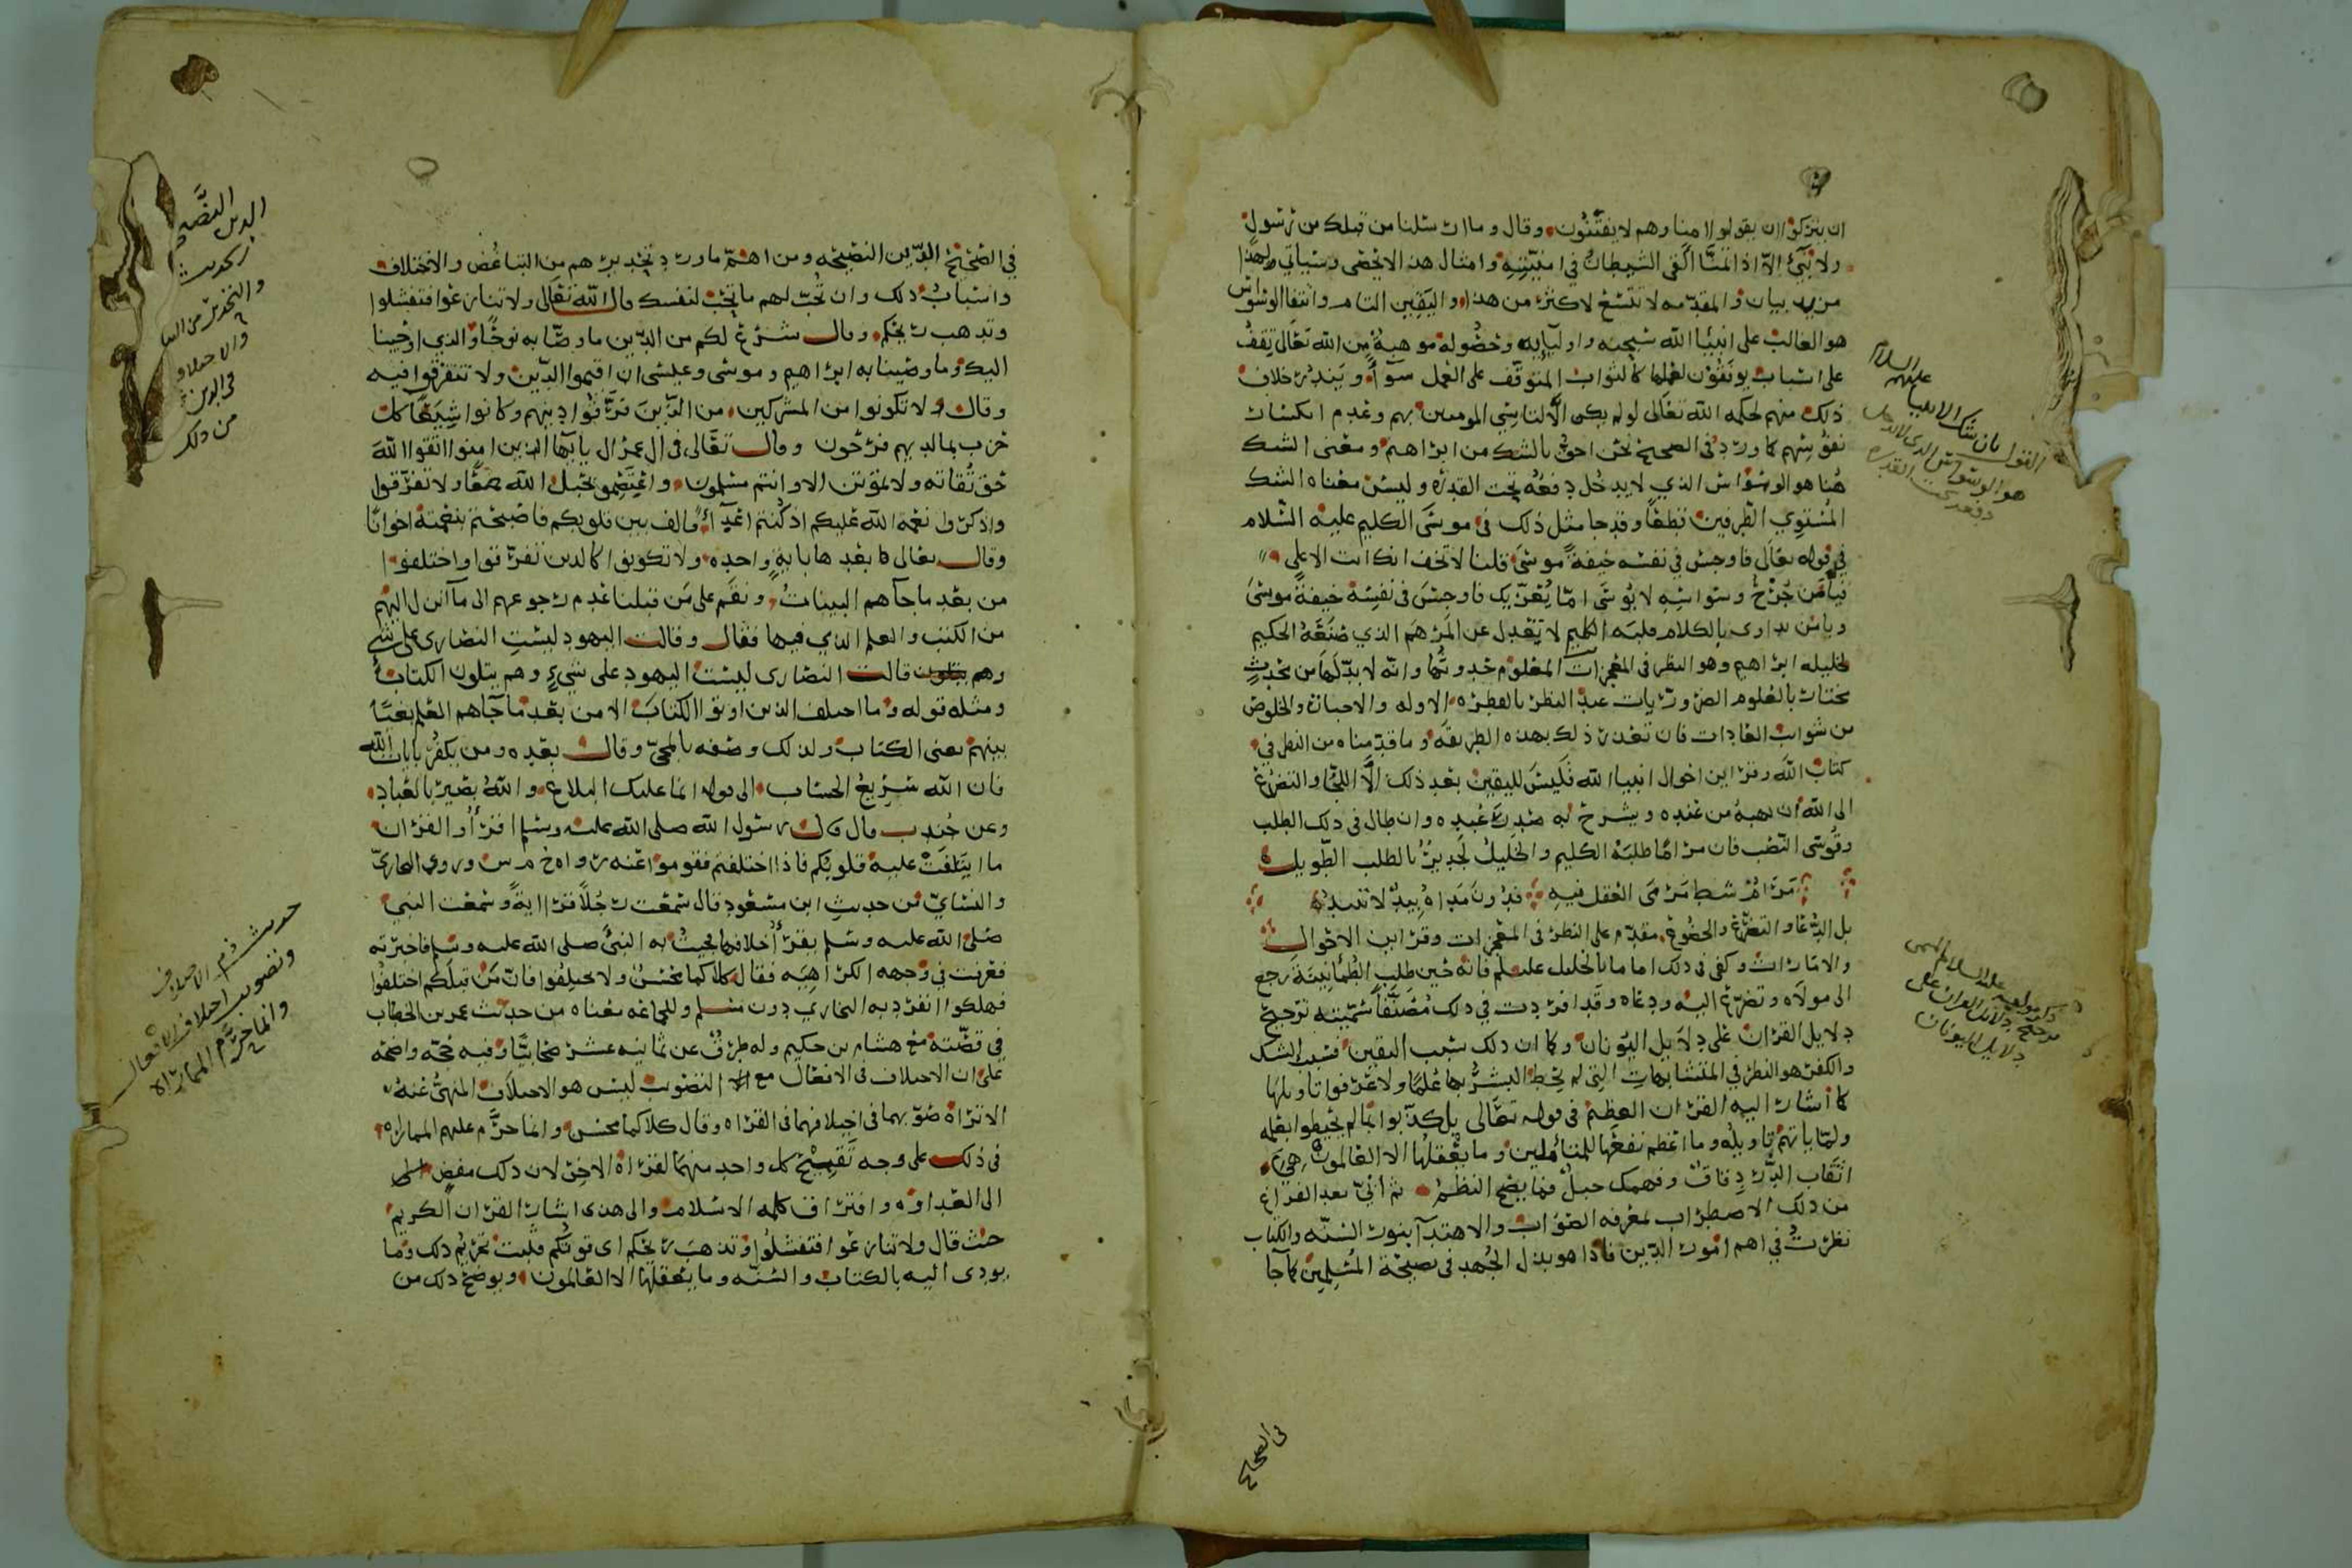 ان يتركوا ان يقولوا امنا وهم لا يفتنون وقال وما ارسلنا من قبلك من رسول
ولا نبي الا اذا تمنى القى الشيطان في امنيته وامثال هذا لا تحصى وسيأتي لهذا
مزيد بيان والمقدمه لا تتسع لاكثر من هذا واليقين التام وانتفا الوسواس
هو الغالب على انبيا الله سبحنه واوليايه وحصوله موهبة من الله تعالى تقف
على اسباب يوفقون لفعلها كالثواب المتوقف على العمل سوآ ويندر خلاف
ذلك منهم لحكمه الله تعالى لو لم يكن الا لتاسي المومنين بهم وعدم انكسار
نفوسهم كما ورد في الصحيح نحن احق بالشك من ابراهيم ومعنى الشك
هنا هو الوسواس الذي لا يدخل دفعه تحت القدره وليس معناه الشك
المستوي الطرفين قطعا وقد جا مثل ذلك في موسى الكليم عليه السلام
في قوله تعالى فاوجس في نفسه خيفة موسى قلنا لا تخف انك انت الاعلى
فيا من جرح وسواسه لا يوسى اما يعزيك فاوجس في نفسه خيفة موسى
ويا من يداوى بالكلام قلبه الكليم لا تعدل عن المرهم الذي صنعه الحكيم
لخليله ابراهيم وهو النظر في المعجزات المعلوم حدوثها وانه لا بد لها من محدث
مختار بالعلوم الضروريات عند النظر بالفطره الاوله والاحسان والخلوص
من شوايب العادات فان تعذر ذلك بهذه الطريقه وما قدمناه من النظر في
كتاب الله وقراين احوال انبيا الله فليس لليقين بعد ذلك الا اللجا والتضرع
الى الله ان يهبه من عنده ويشرح له صدر عبده وان طال في ذلك الطلب
وقوسى التعب فان مراما طلبه الكليم والخليل لجدير بالطلب الطويل
مرام شط مرمى العقل فيه فدون مداه بيد لا تبيد
بل الدعا والتضرع والخضوع مقدم على النظر في المعجزات وقراين الاحوال
والامارات وكفى في ذلك اماما بالخليل عليلم فانه حين طلب الطمأنينة رجع
الى مولاه وتضرع اليه ودعاه وقد افردت في ذلك مصنفا سميته ترجيح
دلايل القران على دلايل اليونان وكما ان ذلك سبب اليقين فسبب الشك
والكفر هو النظر في المتشابهات التي لم يحط البشر بها علما ولا عرفوا تاويلها
كما اشار اليه القران العظيم في قوله تعالى بل كذبوا بما لم يحيطوا بعلمه
ولما ياتهم تاويله وما اعظم نفعها للمتاملين وما يعقلها الا العالمون
اثقاب الدر دقاق وفهمك حبل فما يضح النظم ثم اني بعد الفراغ
من ذلك الاضطراب لمعرفه الصواب والاهتدآ بنور السنه والكتاب
نظرت في اهم امور الدين فاذا هو بذل الجهد في نصيحة المسلمين كما جا
القول بان شك الانبيا عليهم السلام
هو الوسواس الذي لا يدخل
دفعه تحت القدره
ذكر مولفه عليه السلام المسمى
ترجيح دلايل القران على
دلايل اليونان
في الصحيح
في الصحيح الدين النصيحه ومن اهم ما ورد تحذيرهم من التباغض والاختلاف
واسباب ذلك وان تحب لهم ما تحب لنفسك قال الله تعالى ولا تنازعوا فتفشلوا
وتذهب ريحكم وقال شرع لكم من الدين ما وصا به نوحا والذي اوحينا
اليك وما وصينا به ابراهيم وموسى وعيسى ان اقيموا الدين ولا تتفرقوا فيه
وقال ولا تكونوا من المشركين من الذين فرقوا دينهم وكانوا شيعا كل
حزب بما لديهم فرحون وقال تعالى في ال عمران يا ايها الذين امنوا اتقوا الله
حق تقاته ولا تموتن الا وانتم مسلمون واعتصموا بحبل الله جميعا ولا تفرقوا
واذكروا نعمة الله عليكم اذ كنتم اعدآء فالف بين قلوبكم فاصبحتم بنعمته اخوانا
وقال تعالى فما بعدها باية واحده ولا تكونوا كالذين تفرقوا واختلفوا
من بعد ما جآهم البينات ونقم على من قبلنا عدم رجوعهم الى ما انزل اليهم
من الكتب والعلم الذي فيها فقال وقالت اليهود ليست النصارى على شي
وهم يتلون قالت النصارى ليست اليهود على شيء وهم يتلون الكتاب
ومثله قوله وما اختلف الذين اوتوا الكتاب الا من بعد ما جآهم العلم بغيا
بينهم يعنى الكتاب ولذلك وصفه بالمجي وقال بعده ومن يكفر بايات الله
فان الله سريع الحساب الى قوله انما عليك البلاغ والله بصير بالعباد
وعن جندب قال قال رسول الله صلى الله عليه وسلم اقرأوا القران
ما ايتلفت عليه قلوبكم فاذا اختلفتم فقوموا عنه رواه خ م س وروى البخاري
والنسائي من حديث ابن مسعود قال سمعت رجلا قرا اية وسمعت النبي
صلى الله عليه وسلم يقرأ خلافها فجيت به النبي صلى الله عليه وسلم فاخبرته
فعرفت في وجهه الكراهيه فقال كلاكما محسن ولا تختلفوا فان من قبلكم اختلفوا
فهلكوا انفرد به البخاري دون مسلم وللجماعه معناه من حديث عمر بن الخطاب
في قصته مع هشام بن حكيم وله طرق عن ثمانيه عشر صحابيا وفيه حجه واضحه
على ان الاختلاف في الافعال مع التصويب ليس هو الاختلاف المنهي عنه
الا تراه صوبهما في اختلافهما في القراه وقال كلاكما محسن وانما حرم عليهم المماراه
في ذلك على وجه تقبيح كل واحد منهما لقراة الاخر لان ذلك مفض
الى العداوه وافتراق كلمه الاسلام والى هذا اشار القران الكريم
حيث قال ولا تنازعوا فتفشلوا وتذهب ريحكم اى قوتكم فثبت تحريم ذلك وما
يودى اليه بالكتاب والسنه وما يعقلها الا العالمون ويوضح ذلك من
الدين النصيحه
والتحذير من
والاختلاف
في الدين
من ذلك
حديث ذم الاختلاف
وتصويب اختلاف الافعال
وانما حرم المماراه